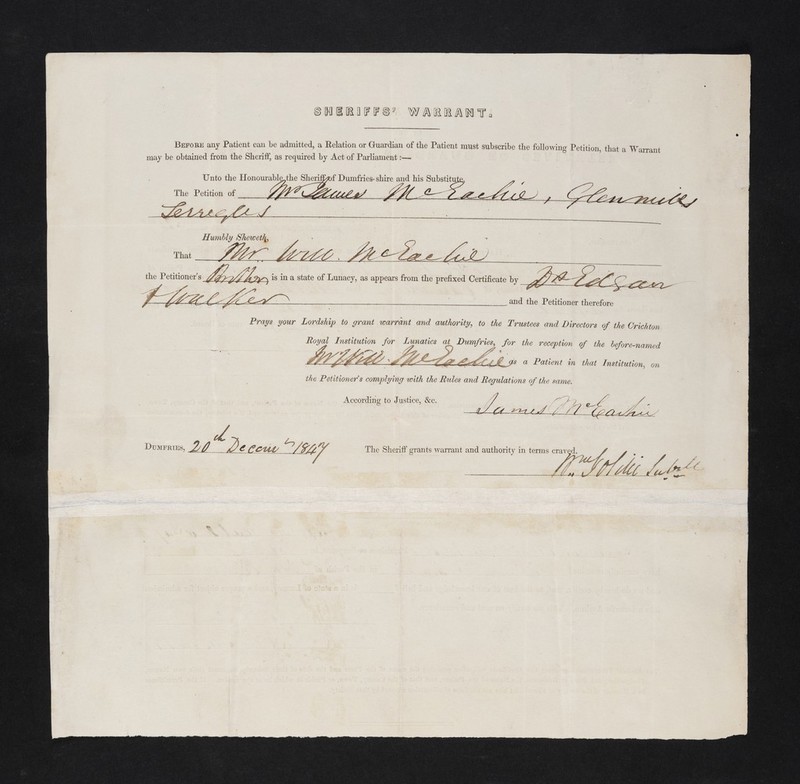 SHERIFFS' WARRANT.
BEFORE any Patient can be admitted, a Relation or Guardian of the Patient must subscribe the following Petition, that a Warrant
may be obtained from the Sheriff, as required by Act of Parliament :—
Unto the Honourable, the Sheriff of Dumfries-shire and his Substitute,
The Petition of Mr James McEachie, Glenmills
Terregles
Humbly Sheweth,
That Mr. Will. McEachie
the Petitioner's Brother, is in a state of Lunacy, as appears from the prefixed Certificate by Drs Edgar
& Walker and the Petitioner therefore
Prays your Lordship to grant warrant and authority, to the Trustees and Directors of the Crichton
Royal Institution for Lunatics at Dumfries, for the reception of the before-named
Mr Will. McEachie as a Patient in that Institution, on
the Petitioner's complying with the Rules and Regulations of the same.
According to Justice, &c.
James McEachie
DUMFRIES, 20th Decemr 1847 The Sheriff grants warrant and authority in terms craved.
Wm Goldie Subste